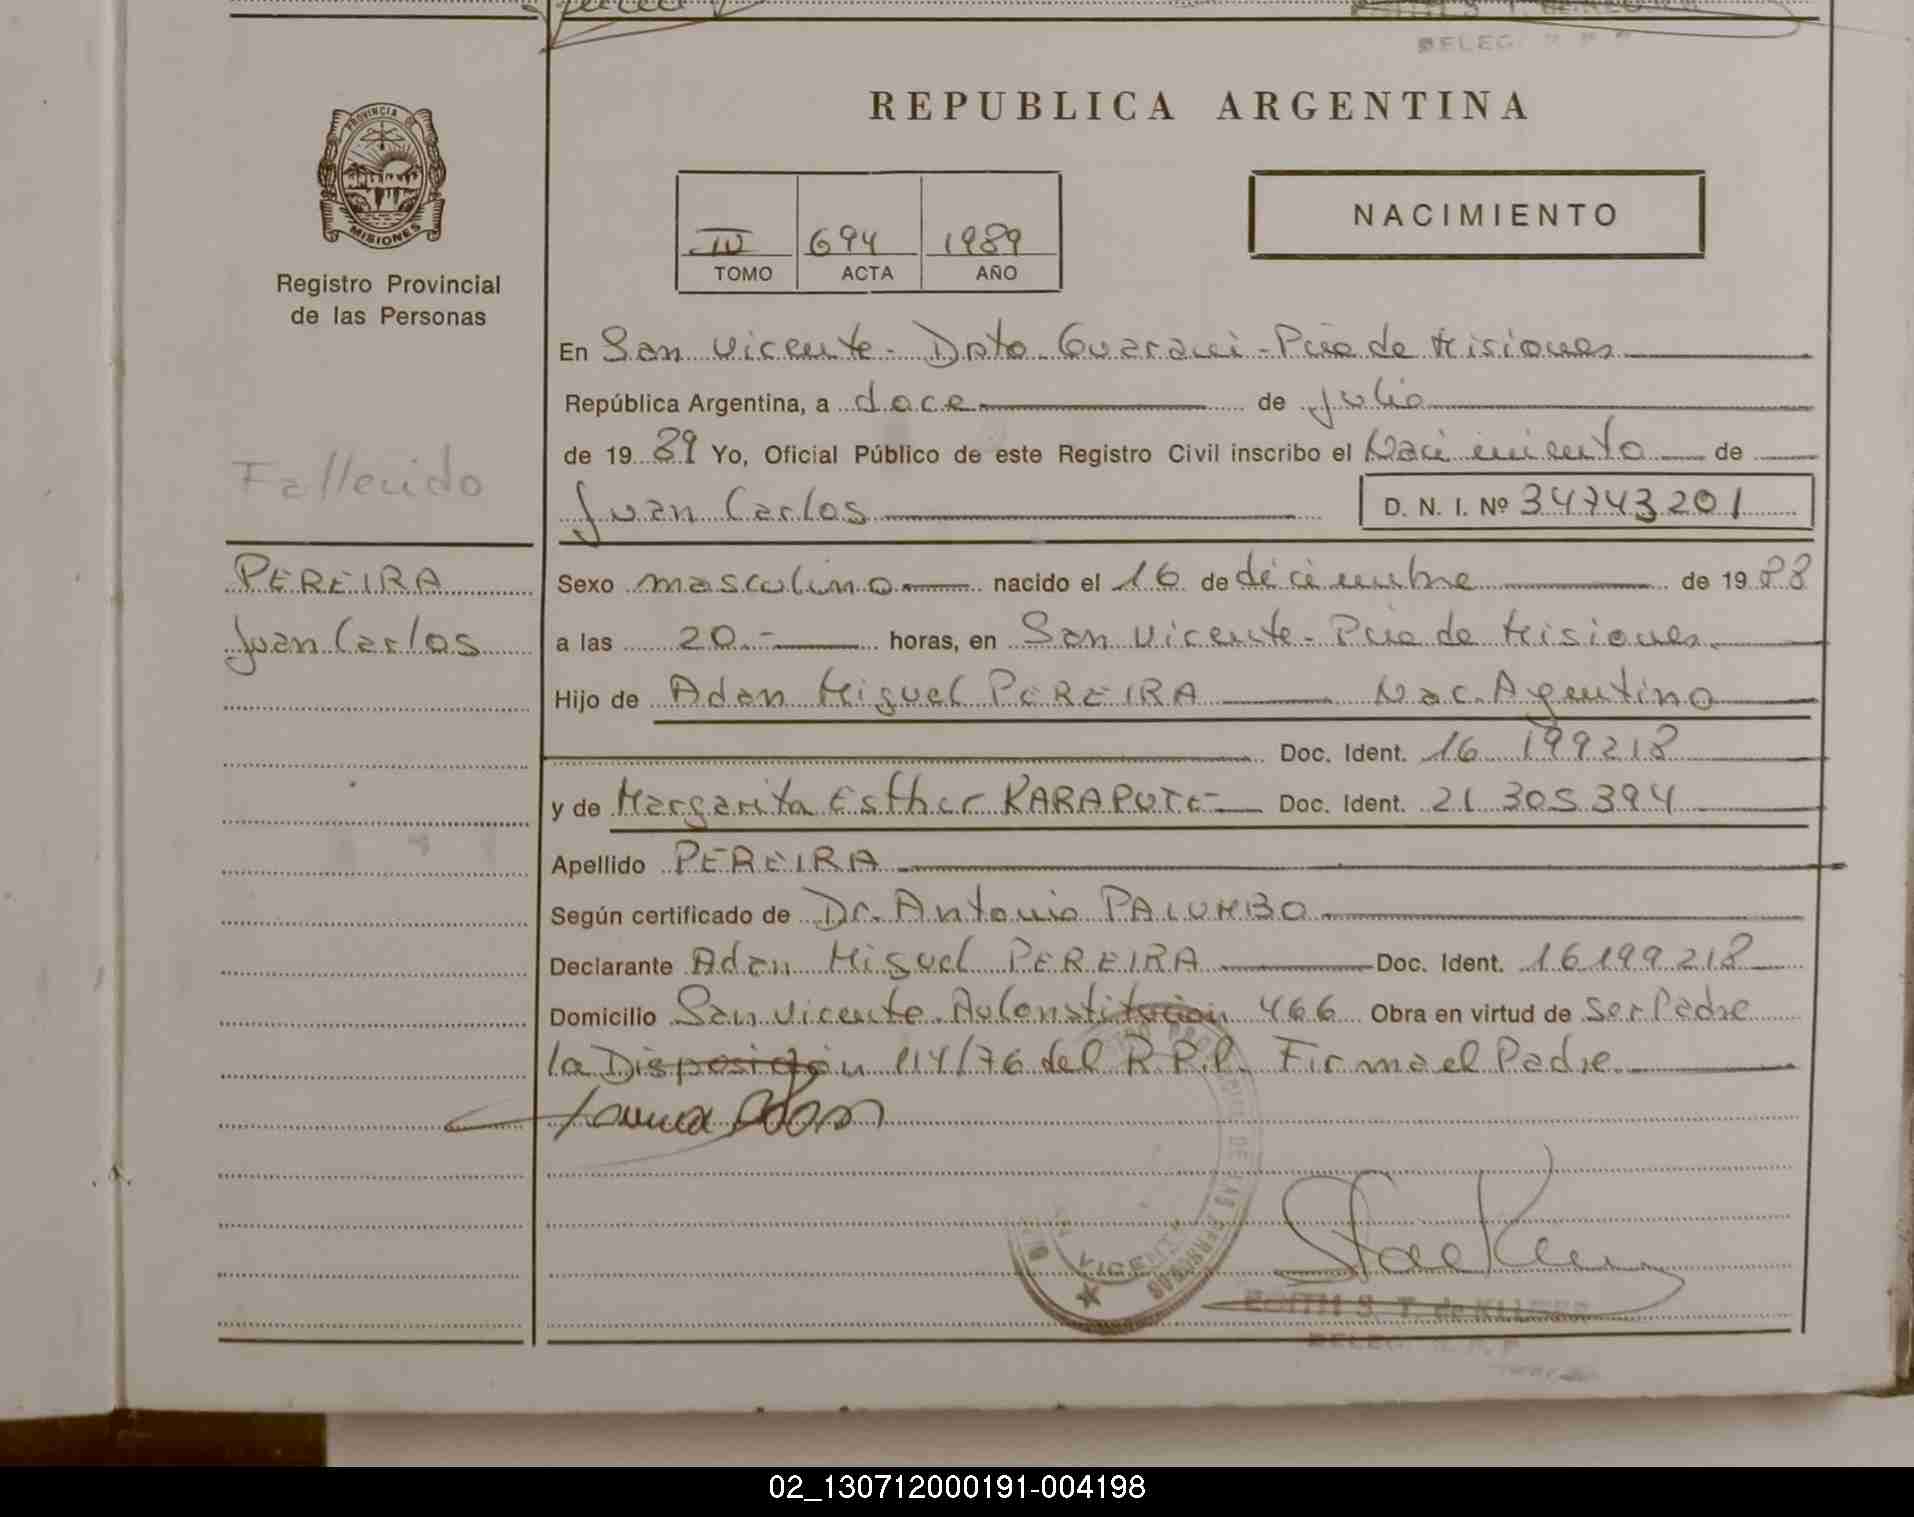 DELEG.
REPUBLICA ARGENTINA
PROVINCIA DE
MISIONES
Registro Provincial
de las Personas
IV 694 1989
TOMO ACTA AÑO
NACIMIENTO
En San Vicente - Dpto Guarani - Pcia de Misiones
República Argentina, a doce de Julio
de 1989 Yo, Oficial Público de este Registro Civil inscribo el Nacimiento de
Fallecido
Juan Carlos D. N. I. Nº 34743201
PEREIRA
Juan Carlos
Sexo masculino nacido el 16 de diciembre de 1988
a las 20.- horas, en San Vicente - Pcia de Misiones
Hijo de Adan Miguel PEREIRA Nac. Argentino
Doc. Ident. 16 199218
y de Margarita Esther KARAPUTE Doc. Ident. 21 305 394
Apellido PEREIRA
Según certificado de Dr. Antonio PALUMBO
Declarante Adan Miguel PEREIRA Doc. Ident. 16199218
Domicilio San Vicente Av Constitución 466 Obra en virtud de ser Padre
la Disposición 114/76 del R.P.P. Firma el Padre
VICENTE
EDITH S. T. de
DELEG.
02_130712000191-004198